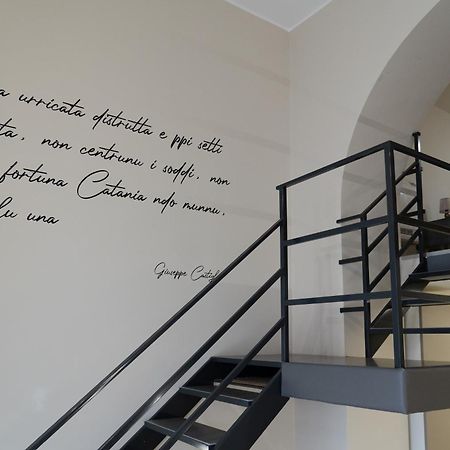 a urricata distrutta e ppi setti
ta, non centrunu i soddi, non
fortuna Catania ndo munnu,
lu una
Giuseppe Castigl